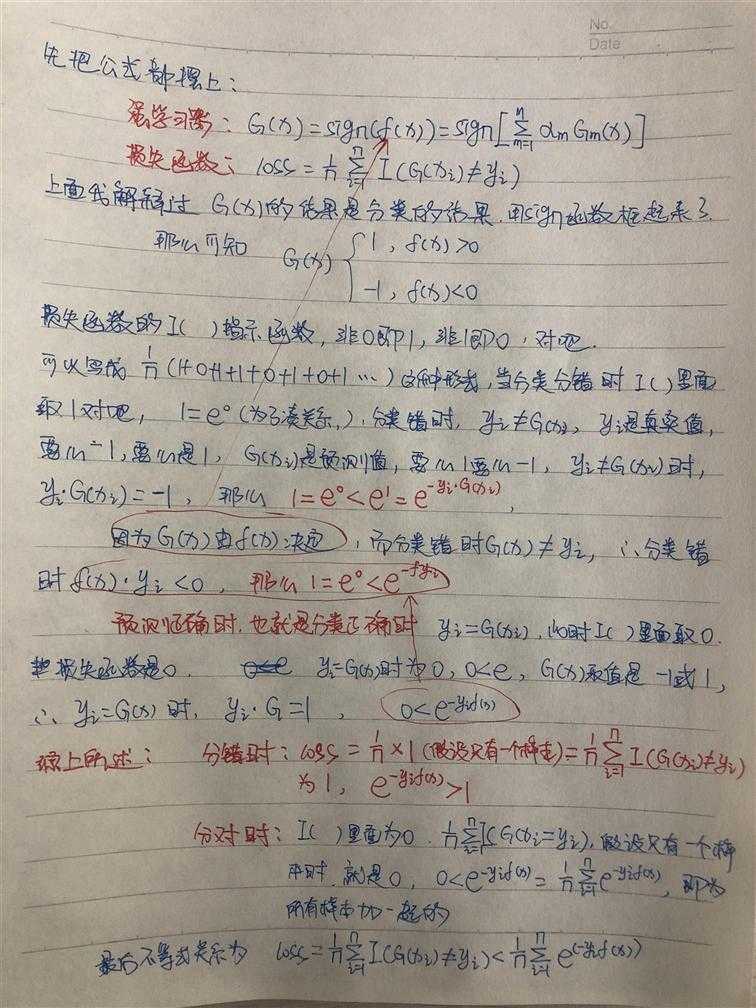 No.
Date
先把公式都摆上:
强学习器: G(x) = sign(f(x)) = sign[∑_{m=1}^{n} αm Gm(x)]
损失函数: loss = 1/n ∑_{i=1}^{n} I(G(xi)≠yi)
上面我解释过 G(x)的结果是分类的结果.用sign函数框起来了.
那么可知 G(x) { 1, f(x)>0
-1, f(x)<0
损失函数的I( )指示函数, 非0即1, 非1即0, 对吧.
可以写成 1/n (1+0+1+1+0+1+0+1 ...) 这种形式, 当分类分错时 I( )里面
取1对吧, 1=e^0 (为了凑关系,). 分类错时, yi≠G(xi), yi是真实值,
要么-1, 要么是1, G(xi)是预测值, 要么1要么-1, yi≠G(xi)时,
yi·G(xi)=-1, 那么 1=e^0<e^1=e^{-yi·G(xi)},
因为G(x)由f(x)决定, 而分类错时G(x)≠yi, ∴分类错
时f(x)·yi<0, 那么1=e^0<e^{-fyi}
预测正确时, 也就是分类正确时 yi=G(xi), 此时I( )里面取0.
损失函数是0. yi=G(x)时为0, 0<e, G(x)取值是 -1或1,
∴ yi=G(x) 时, yi·G=1, 0<e^{-yif(x)}
综上所述: 分错时: loss = 1/n ×1 (假设只有一个样本) = 1/n ∑_{i=1}^{n} I(G(xi)≠yi)
为1, e^{-yif(x)}>1
分对时: I( )里面为0. 1/n ∑_{i=1}^{n} I(G(xi)=yi), 假设只有一个样
本时, 就是0, 0<e^{-yif(x)} = 1/n ∑_{i=1}^{n} e^{-yif(x)}, 即为
所有样本加一起的
最后不等式关系为 loss = 1/n ∑_{i=1}^{n} I(G(xi)≠yi) < 1/n ∑_{i=1}^{n} e^{(-yif(x))}